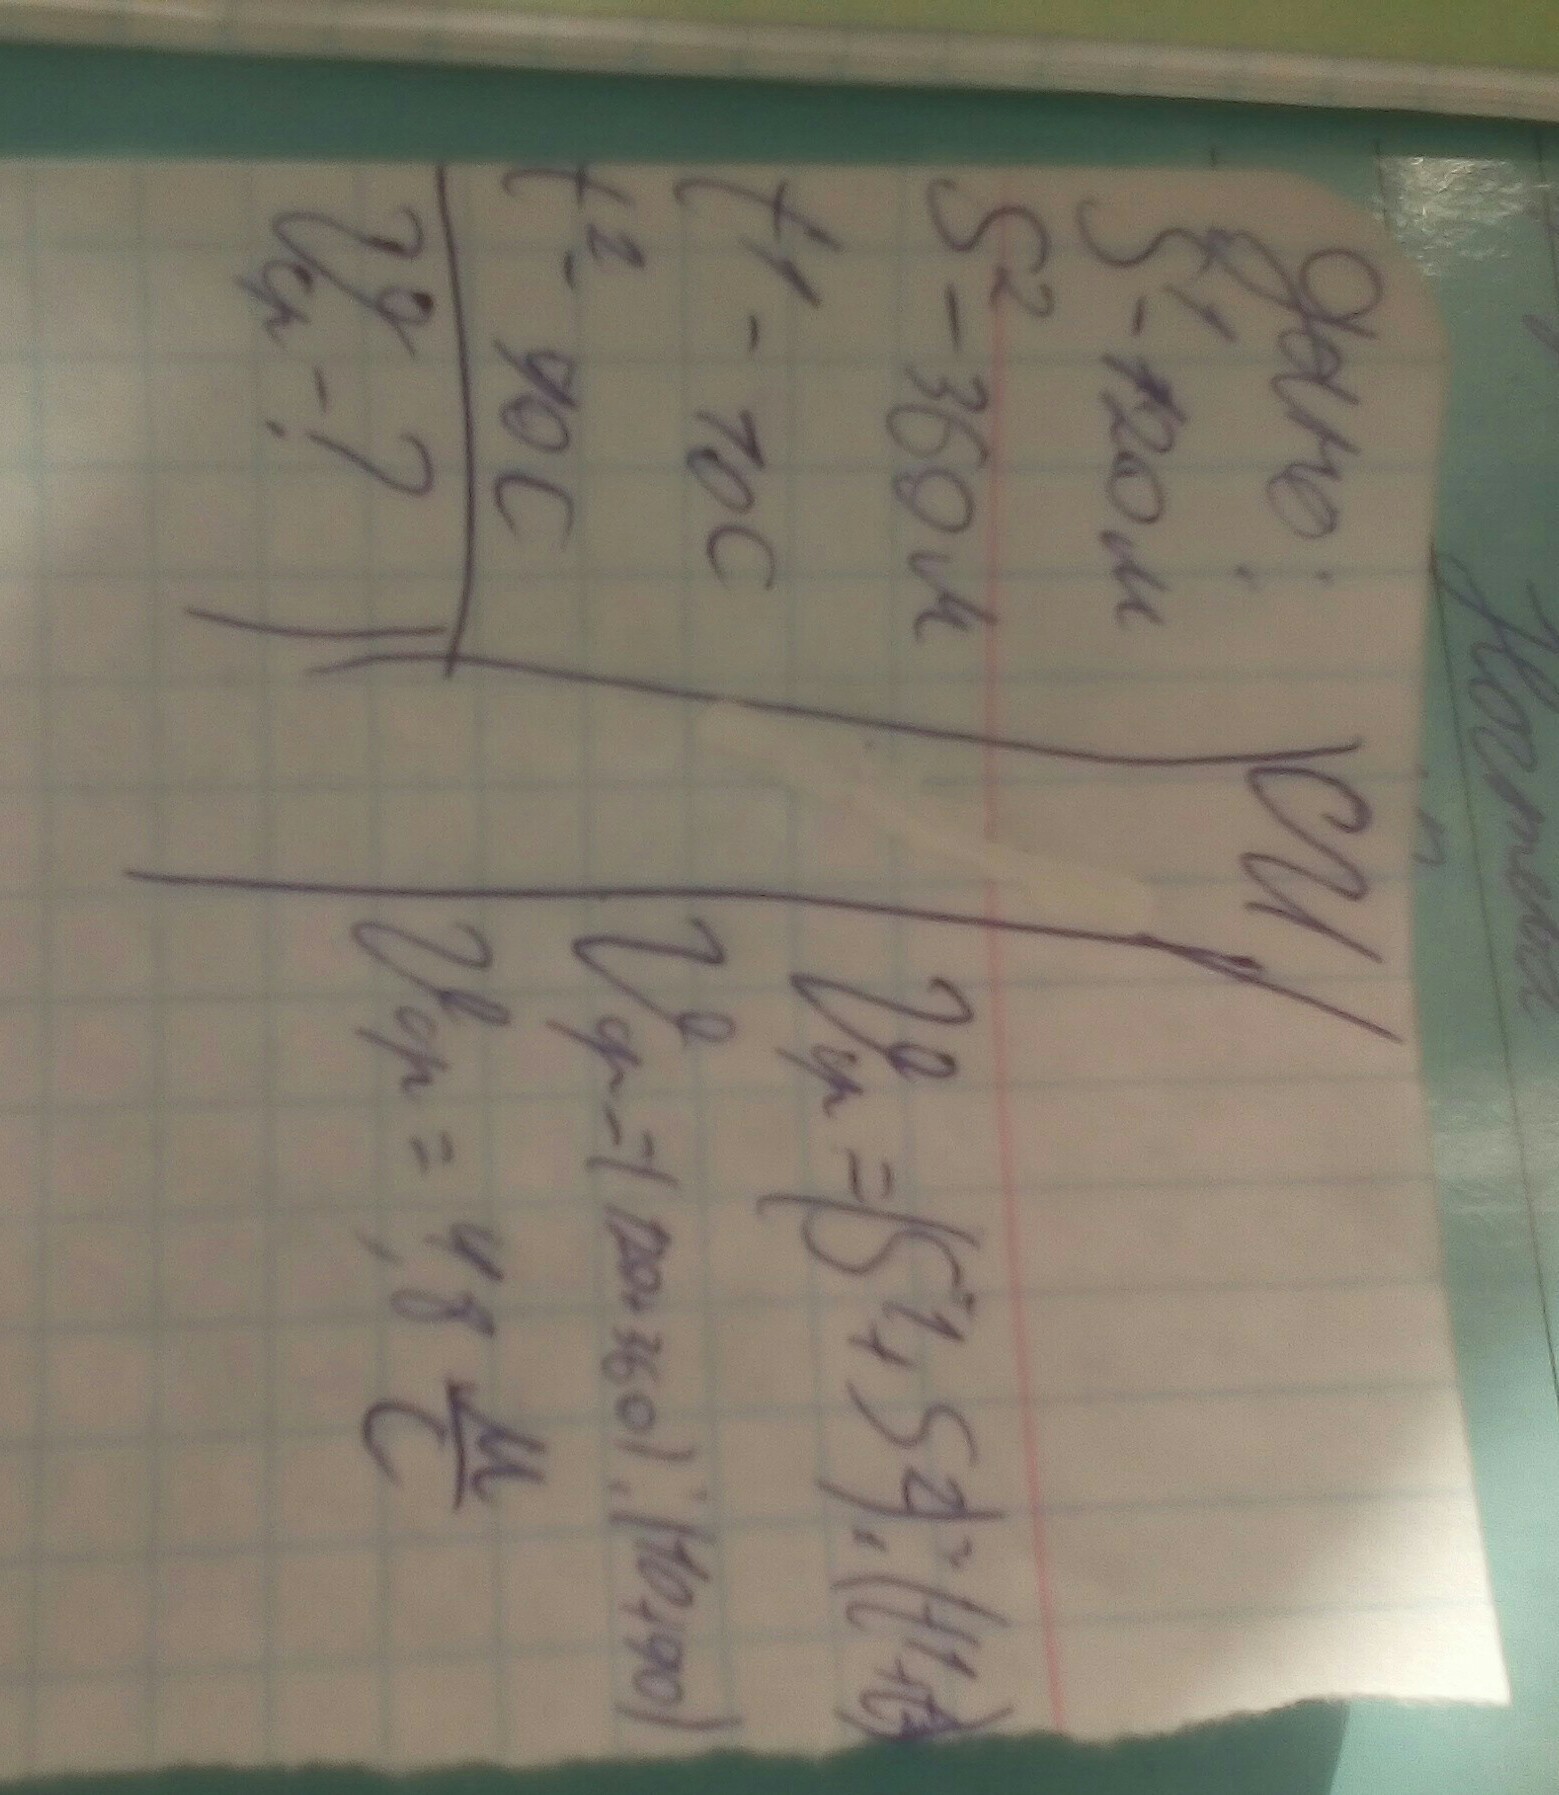 Дано:
S1 - 120м
S2 - 360м
t1 - 10С
t2 - 90С
Vср - ?
СИ
Vср = (S1 + S2):(t1+t2)
Vср = (120+360):(10+90)
Vср = 4,8 м/с